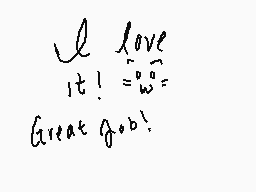 I love
it! =^owo^=
Great job!